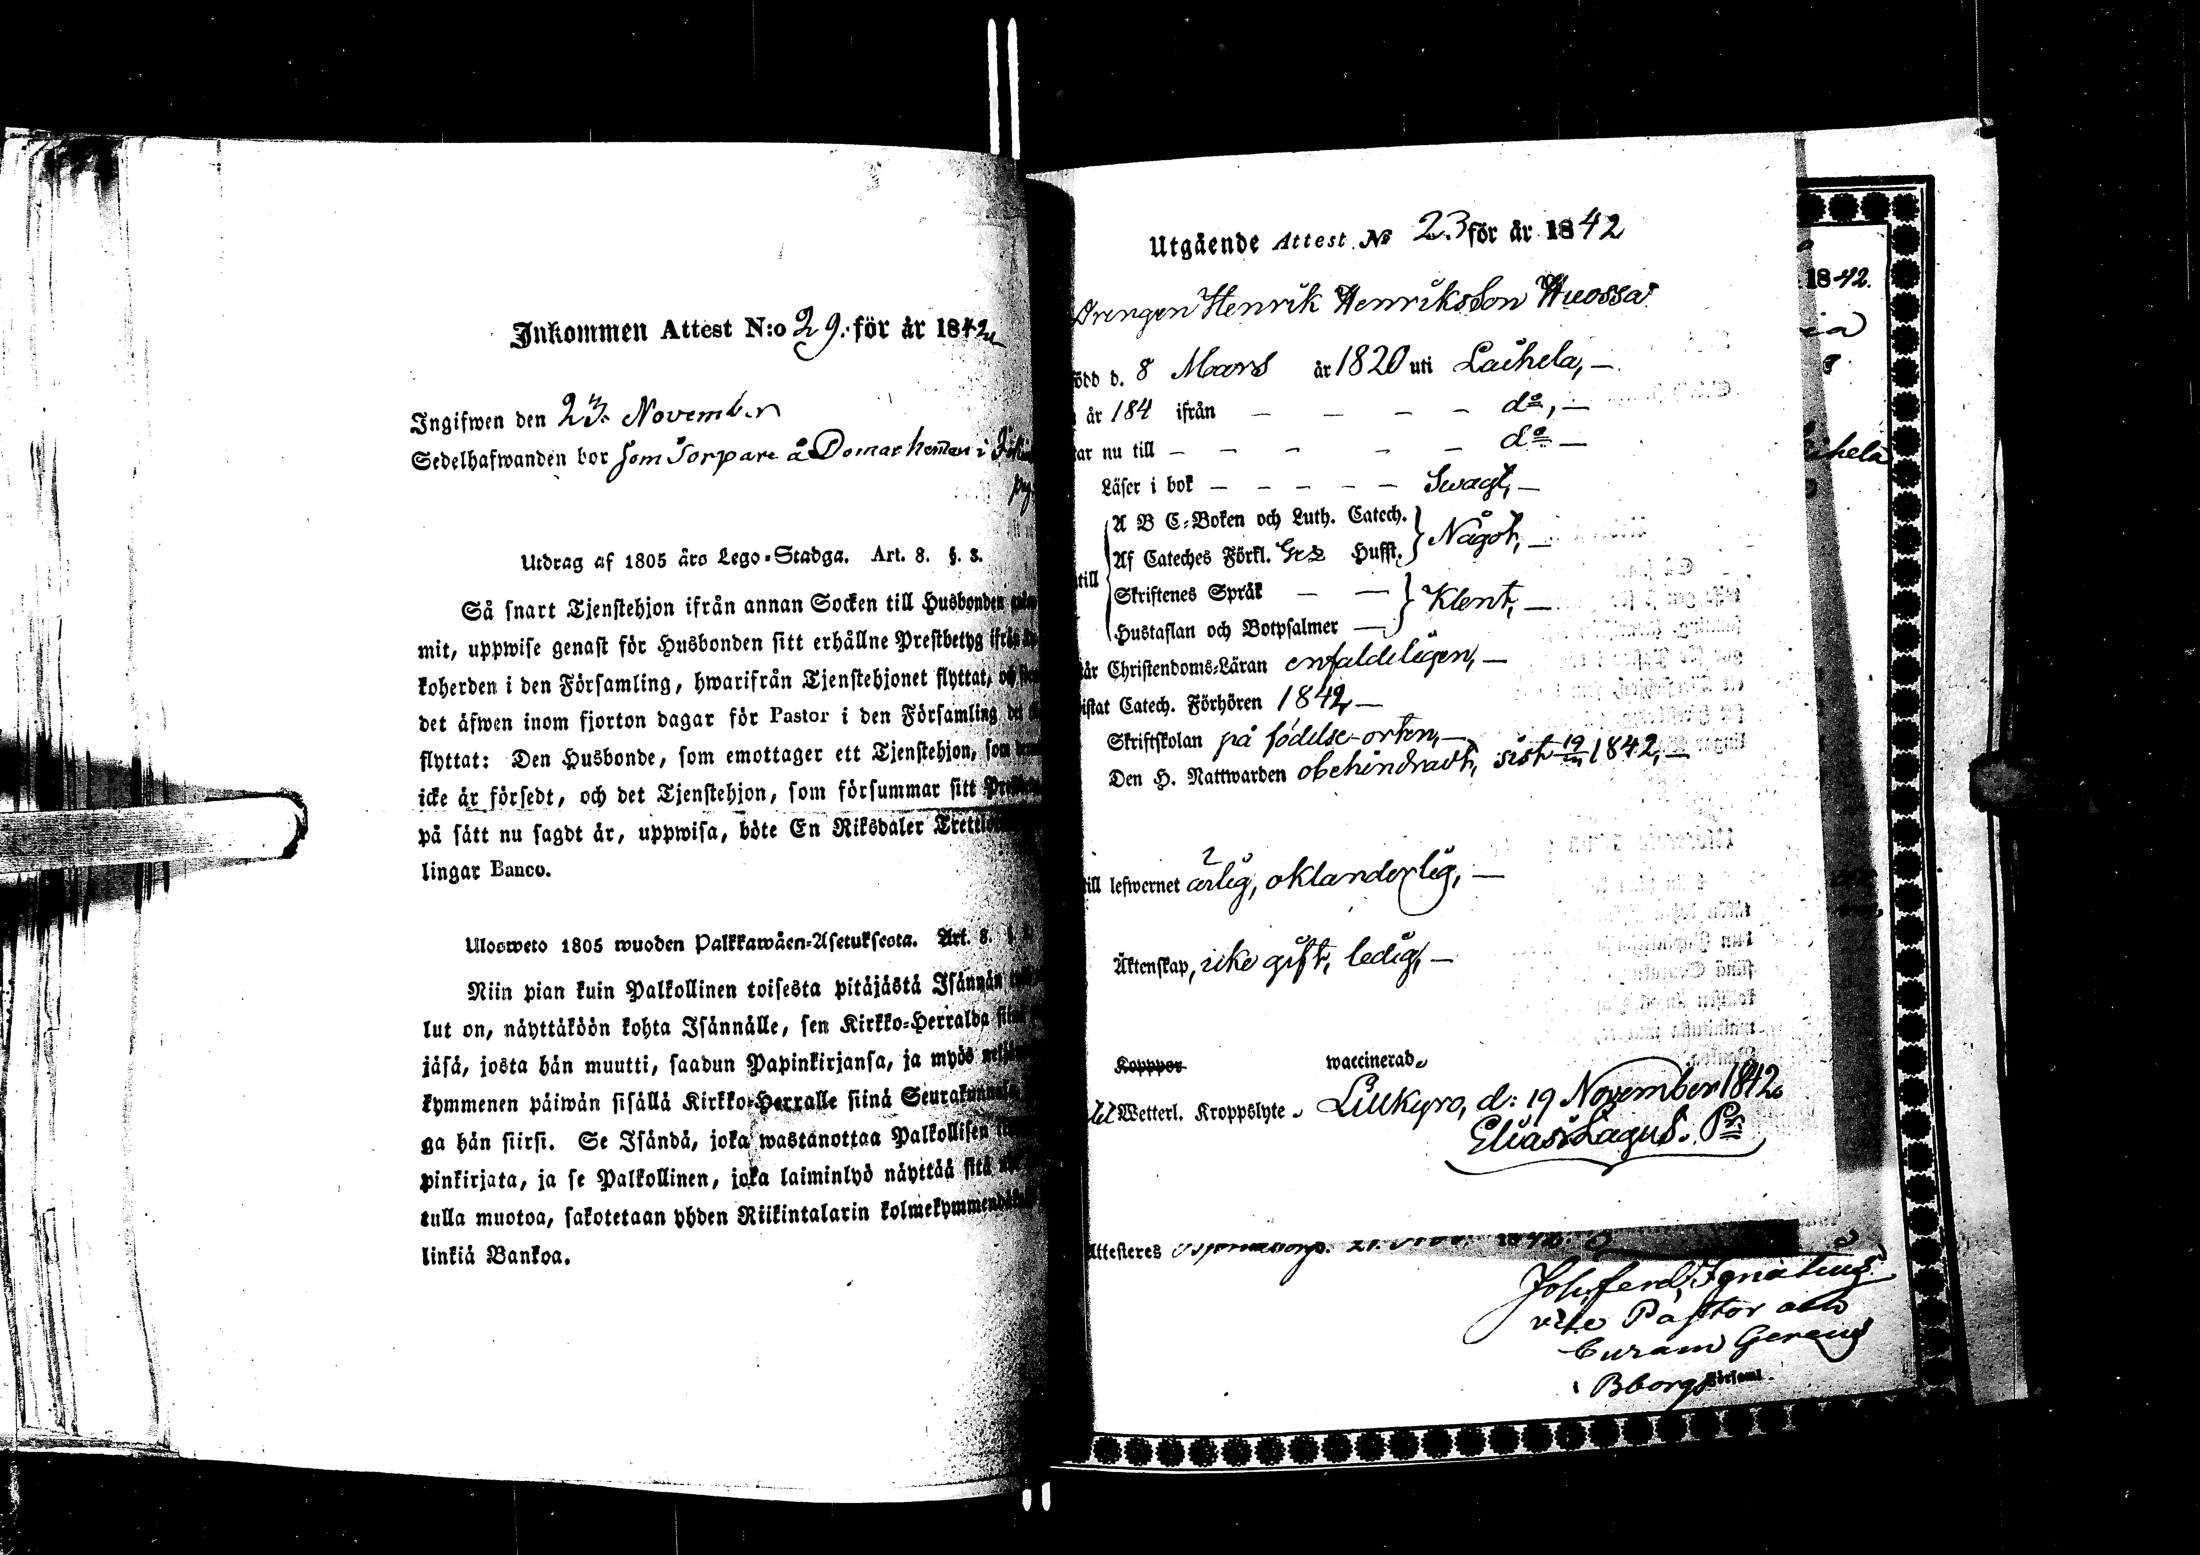 Inkommen Attest N:o 29. för år 1842
Ingifwen den 23. November
Sedelhafwanden bor som Torpare å Domar hemman i
Utdrag af 1805 års Lego-Stadga. Art. 8. §. 3.
Så snart Tjenstehjon ifrån annan Socken till Husbonden
mit, uppwise genast för Husbonden sitt erhållne Prestbetyg ifrån
koherden i den Församling, hwarifrån Tjenstehjonet flyttat,
det äfwen inom fjorton dagar för Pastor i den Församling det
flyttat: Den Husbonde, som emottager ett Tjenstehjon, som
icke är försedt, och det Tjenstehjon, som försummar sitt
på sätt nu sagdt är, uppwisa, böte En Riksdaler
lingar Banco.
Ulosweto 1805 wuoden Palkkawäen-Asetuksesta. Art. 8. §.
Niin pian kuin Palkollinen toisesta pitäjästä Isännän
lut on, näyttäköön kohta Isännälle, sen Kirkko-Herralda
jäsä, josta hän muutti, saadun Papinkirjansa, ja myös
kymmenen päiwän sisällä Kirkko-Herralle siinä
ga hän siirsi. Se Isändä, joka wastanottaa Palkollisen
pinkirjata, ja se Palkollinen, joka laiminlyö näyttää sitä
tulla muotoa, sakotetaan yhden Riikintalarin
linkiä Bankoa.
Utgående Attest No 23 för år 1842
Drengen Henrik Henriksson Huossa
född d. 8 Mars år 1820 uti Laihela, —
år 184 ifrån — — — — do, —
nu till — — — — — do —
Läser i bok — — — — — Swagt, —
A B C-Boken och Luth. Catech. } Något, —
Af Cateches Förkl. Hufst.
till
Skriftenes Språk — — } Klent, —
Hustaflan och Botpsalmer —
Christendoms-Läran enfaldeligen, —
Catech. Förhören 1842, —
Skriftskolan på födelse-orten, —
Den H. Nattwarden obehindradt, sist 1842, —
till lefwernet ärlig, oklanderlig, —
Äktenskap, icke gift, ledig, —
Kopppor waccinerad
Wetterl. Kroppslyte. Lillkyro, d: 19 November 1842.
Elias Lagus. Pr
Attesteres 21. Nov. 1842.
Joh. Ferd. Ignatius
vice Pastor och
Curam Gerens
i Bborgs Församl.
1842.